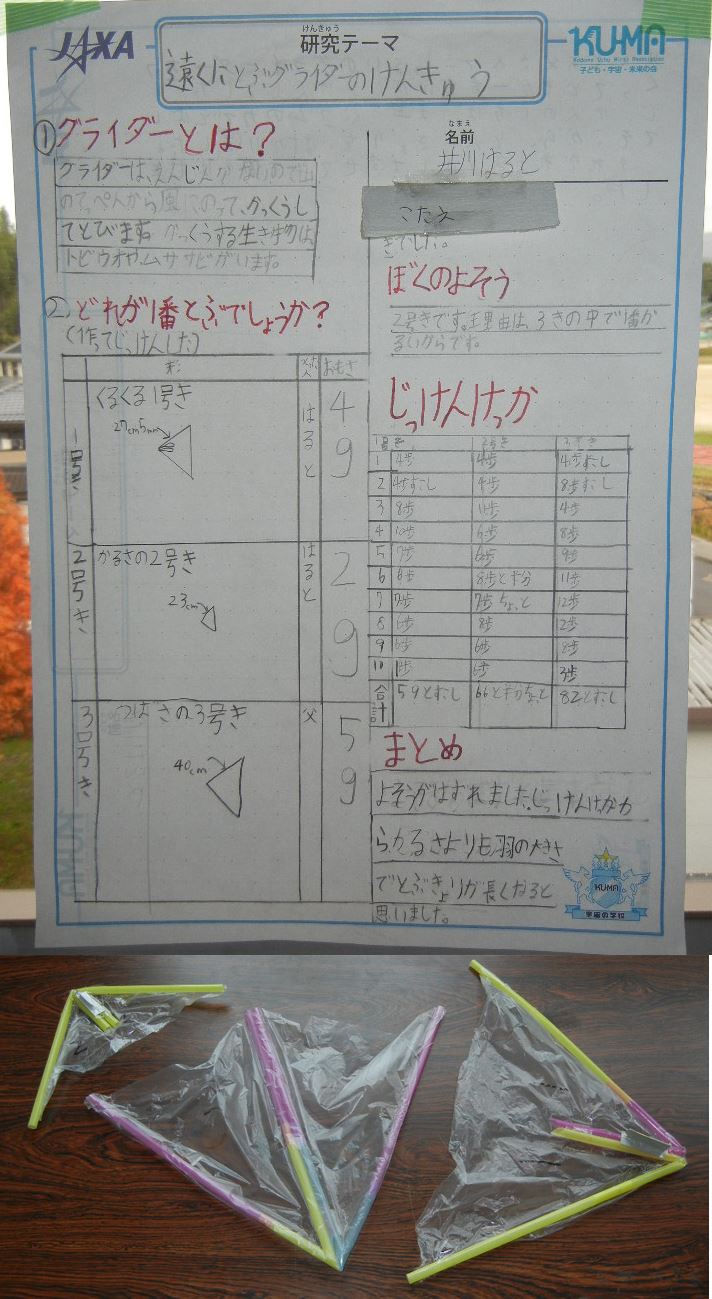 JAXA
けんきゅう
研究テーマ
遠くにとぶグライダーのけんきゅう
KU-MA
Kodomo Uchu Mirai Association
子ども・宇宙・未来の会
①グライダーとは?
グライダーは、えんじんがないので山
のてっぺんから風にのって、かっくうし
てとびます。かっくうする生き物は、
トビウオや、ムササビがいます。
②どれが1番とぶでしょうか?
(作ってじっけんした)
形
おもさ
1号き
くるくる1号き
27cm5mm
はると
4g
2号き
かるさの2号き
23cm
はると
2g
3号き
つばさの3号き
40cm
父
5g
なまえ
名前
井川はると
こたえ
きでした。
ぼくのよそう
2号きです。理由は、3きの中で1番か
るいからです。
じっけんけっか
1号き 2号き 3号き
1 4歩 4歩 4歩すこし
2 4歩すこし 4歩 8歩すこし
3 8歩 11歩 4歩
4 10歩 6歩 8歩
5 7歩 6歩 9歩
6 6歩 8歩と半分 11歩
7 7歩 7歩ちょっと 12歩
8 6歩 8歩 12歩
9 6歩 6歩 8歩
10 1歩 6歩 3歩
合計 59とすこし 66と半分ちょっと 82とすこし
まとめ
よそうがはずれました。じっけんけっかか
ら、かるさよりも羽の大きさ
でとぶきょりが長くなると
思いました。
KUMA
宇宙の学校